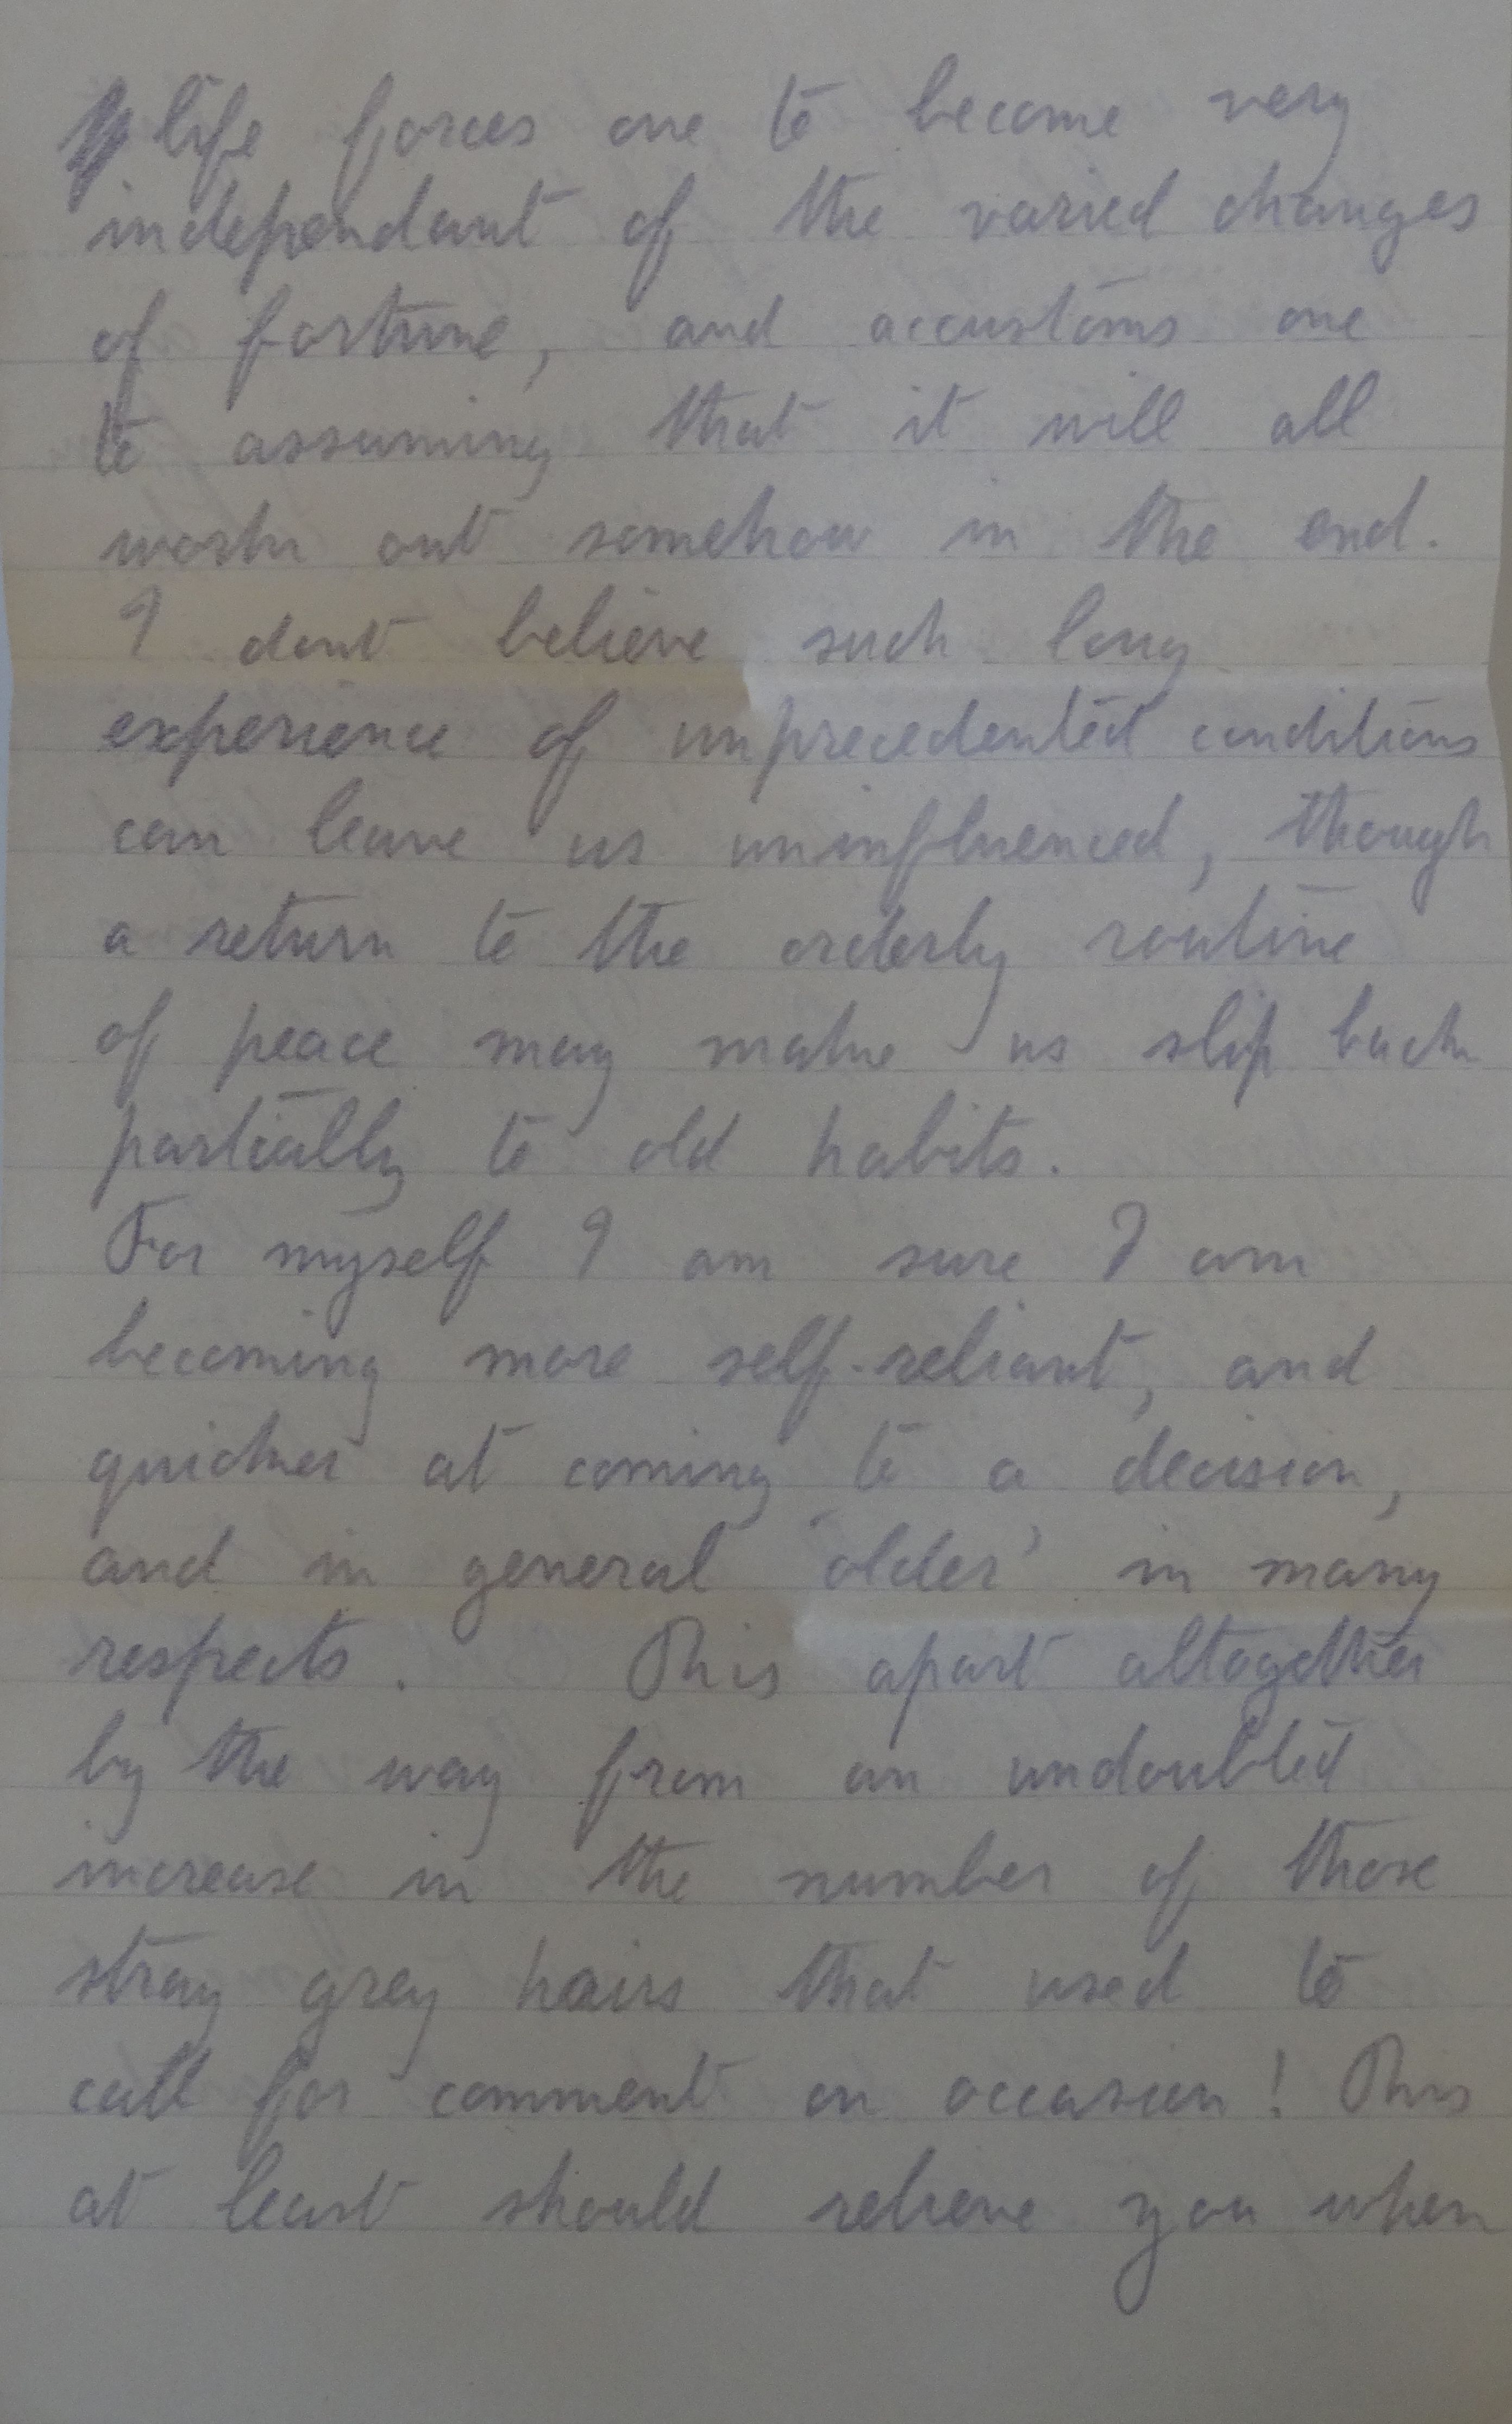 life forces one to become very
independant of the varied changes
of fortune, and accustoms one
to assuming that it will all
work out somehow in the end.
I dont believe such long
experience of unprecedented conditions
can leave us uninfluenced, though
a return to the orderly routine
of peace may make us slip back
partially to old habits.
For myself I am sure I am
becoming more self-reliant, and
quicker at coming to a decision,
and in general 'older' in many
respects. This apart altogether
by the way from an undoubted
increase in the number of those
stray grey hairs that used to
call for comment on occasion! This
at least should relieve you when